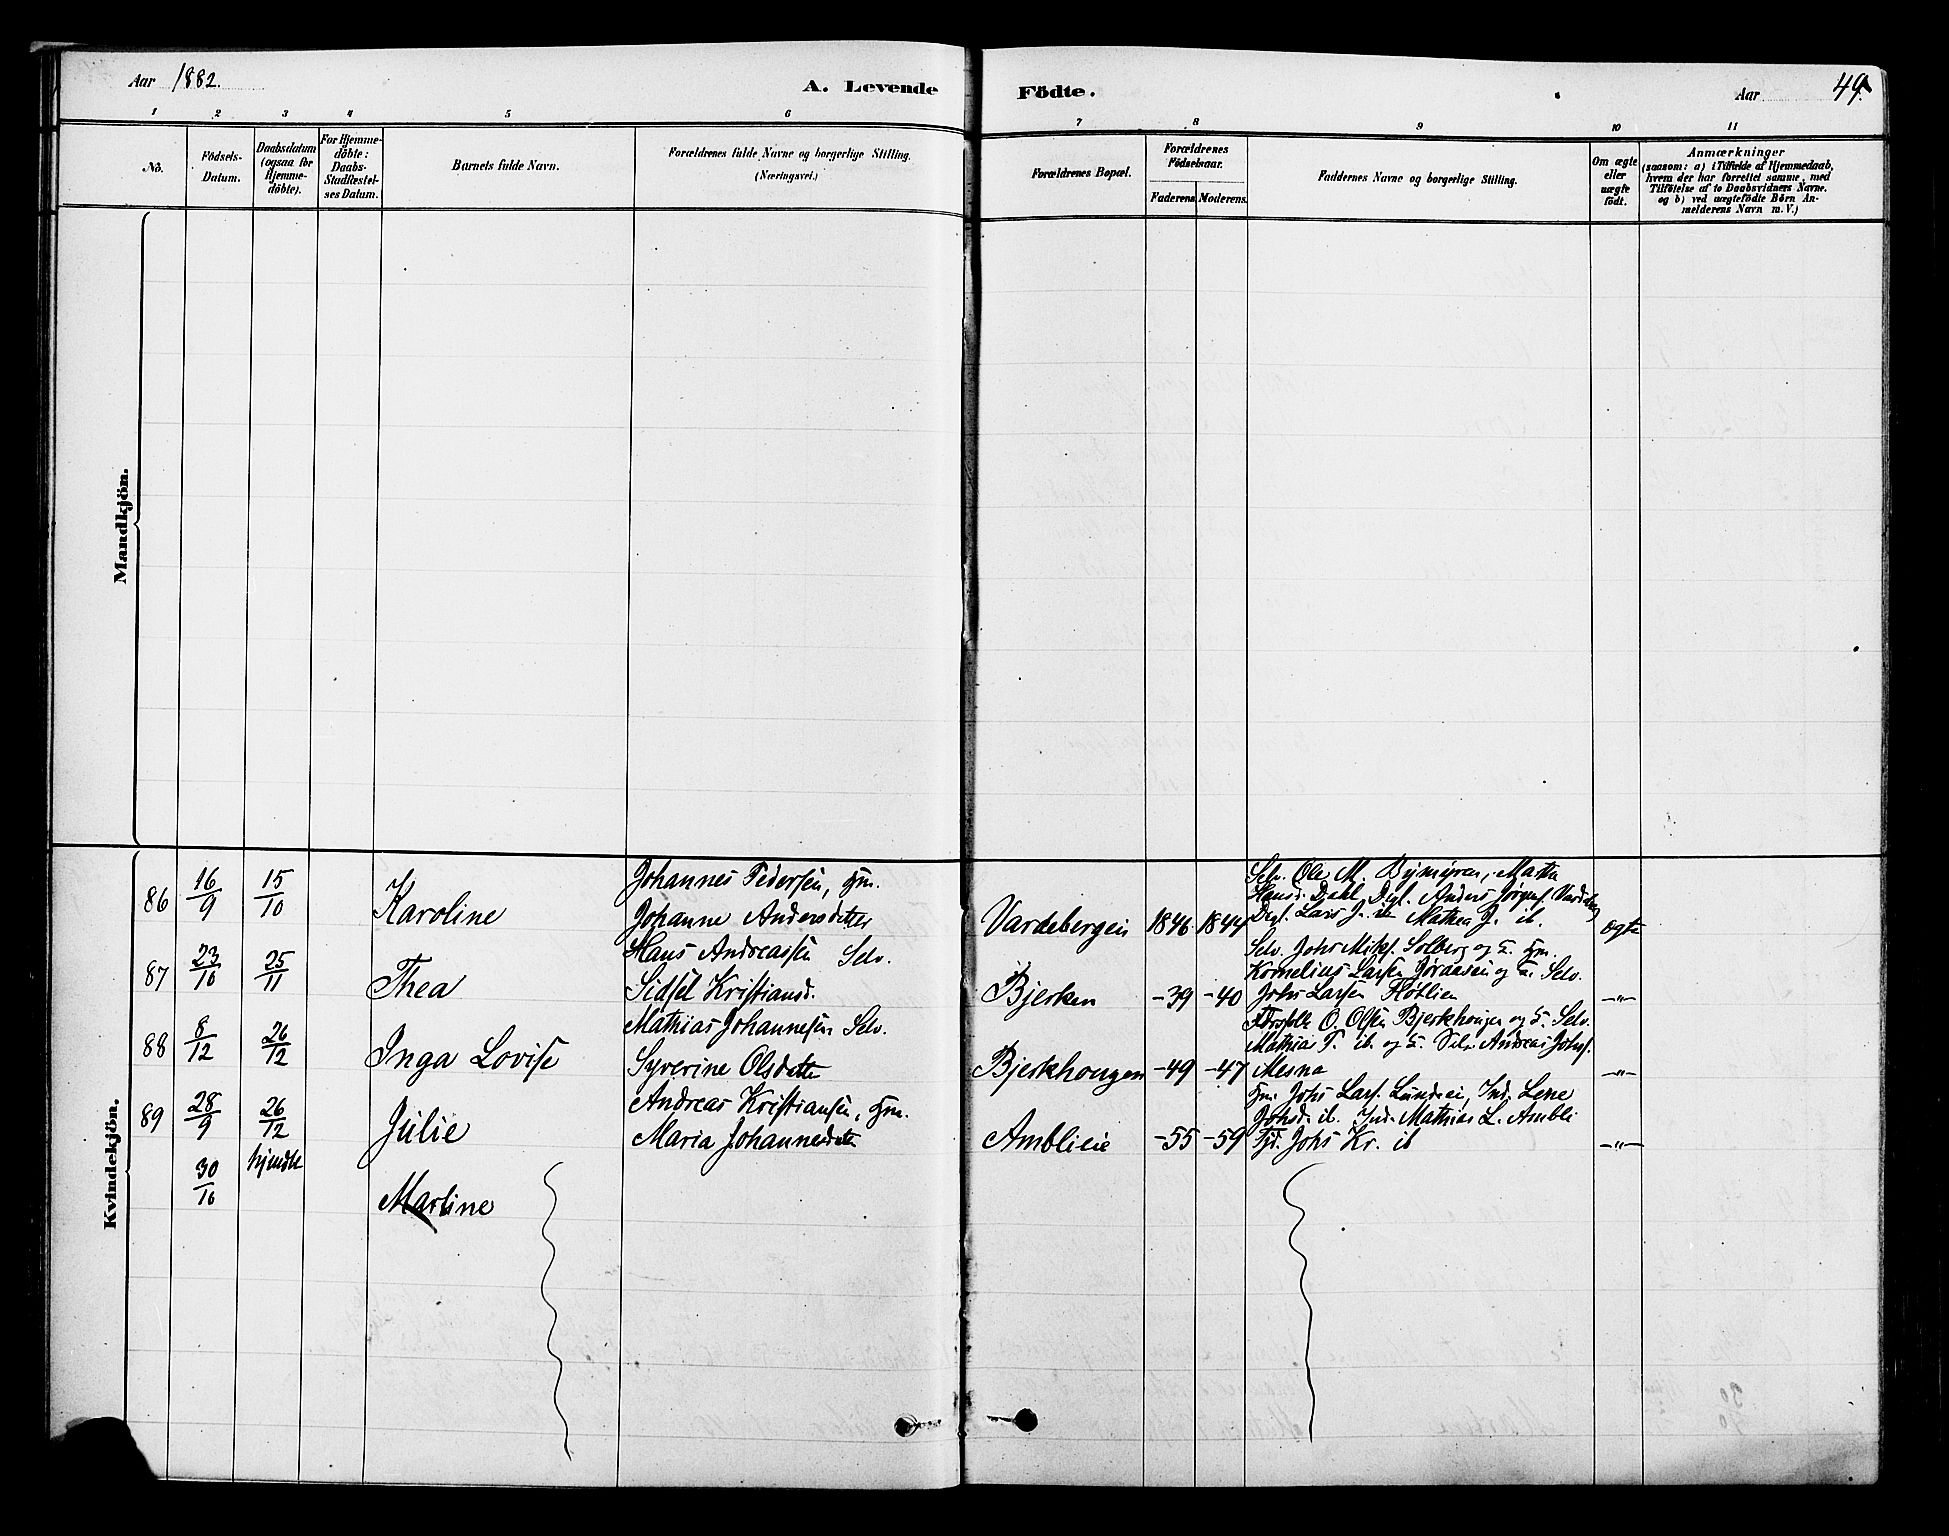 Aar 1882.
A. Levende
Födte.
Aar
49.
1 2 3 4 5 6 7 8 9 10 11
No.
Födsels-
Datum.
Daabsdatum
(ogsaa for
Hjemme-
döbte).
For Hjemme-
döbte:
Daabs-
Stadfestel-
ses Datum.
Barnets fulde Navn.
Forældrenes fulde Navne og borgerlige Stilling.
(Næringsvei.)
Forældrenes Bopæl.
Forældrenes
Födselsaar.
Faderens
Moderens.
Faddernes Navne og borgerlige Stilling.
Om ægte
eller
uægte
født.
Anmærkninger
(saasom: a) i Tilfælde af Hjemmedaab,
hvem der har forrettet samme, med
Tilföielse af to Daabsvidners Navne.
og b) ved uægtefödte Börn An-
melderens Navn m. V.)
Mandkjön.
Kvindekjön.
86 16/9 15/10 Karoline
Johannes Pedersen, Hm.
Johanne Andersdatter
Vardebergen 1846 1844
Selv. Ole M. Bymyren, Mathea
Hansd. Dahl, Dgl. Anders Jørgens. Vardeberg
Dgl. Lars J. ib Mathea J. ib.
ægte
87 23/10 25/11 Thea
Hans Andreassen Selv.
Sidsel Kristiansd.
Bjerken -39 -40
Selv. Johs Mikels. Solberg og H. Hm.
Kornelius Larsen Jøraasen og H. Selv.
Johs Larsen Fløtlien
-"-
88 8/12 26/12 Inga Lovise
Mathias Johannesen Selv.
Syverine Olsdatter
Bjerkhougen -49 -47
O. Olsen Bjerkhougen og H. Selv.
Mathias T. ib. og H. Selv. Andreas Johs.
Mesna
-"-
89 28/9 26/12 Julie
Andreas Kristiansen, Hm.
Maria Johannesdatter
Amblieie -55 -59
Hm. Johs Lars. Lundeie, Ind. Lene
Johsd. ib. Ind. Mathias L. Ambli
Johs Kr. ib
-"-
30/10 hjmdbt Marline